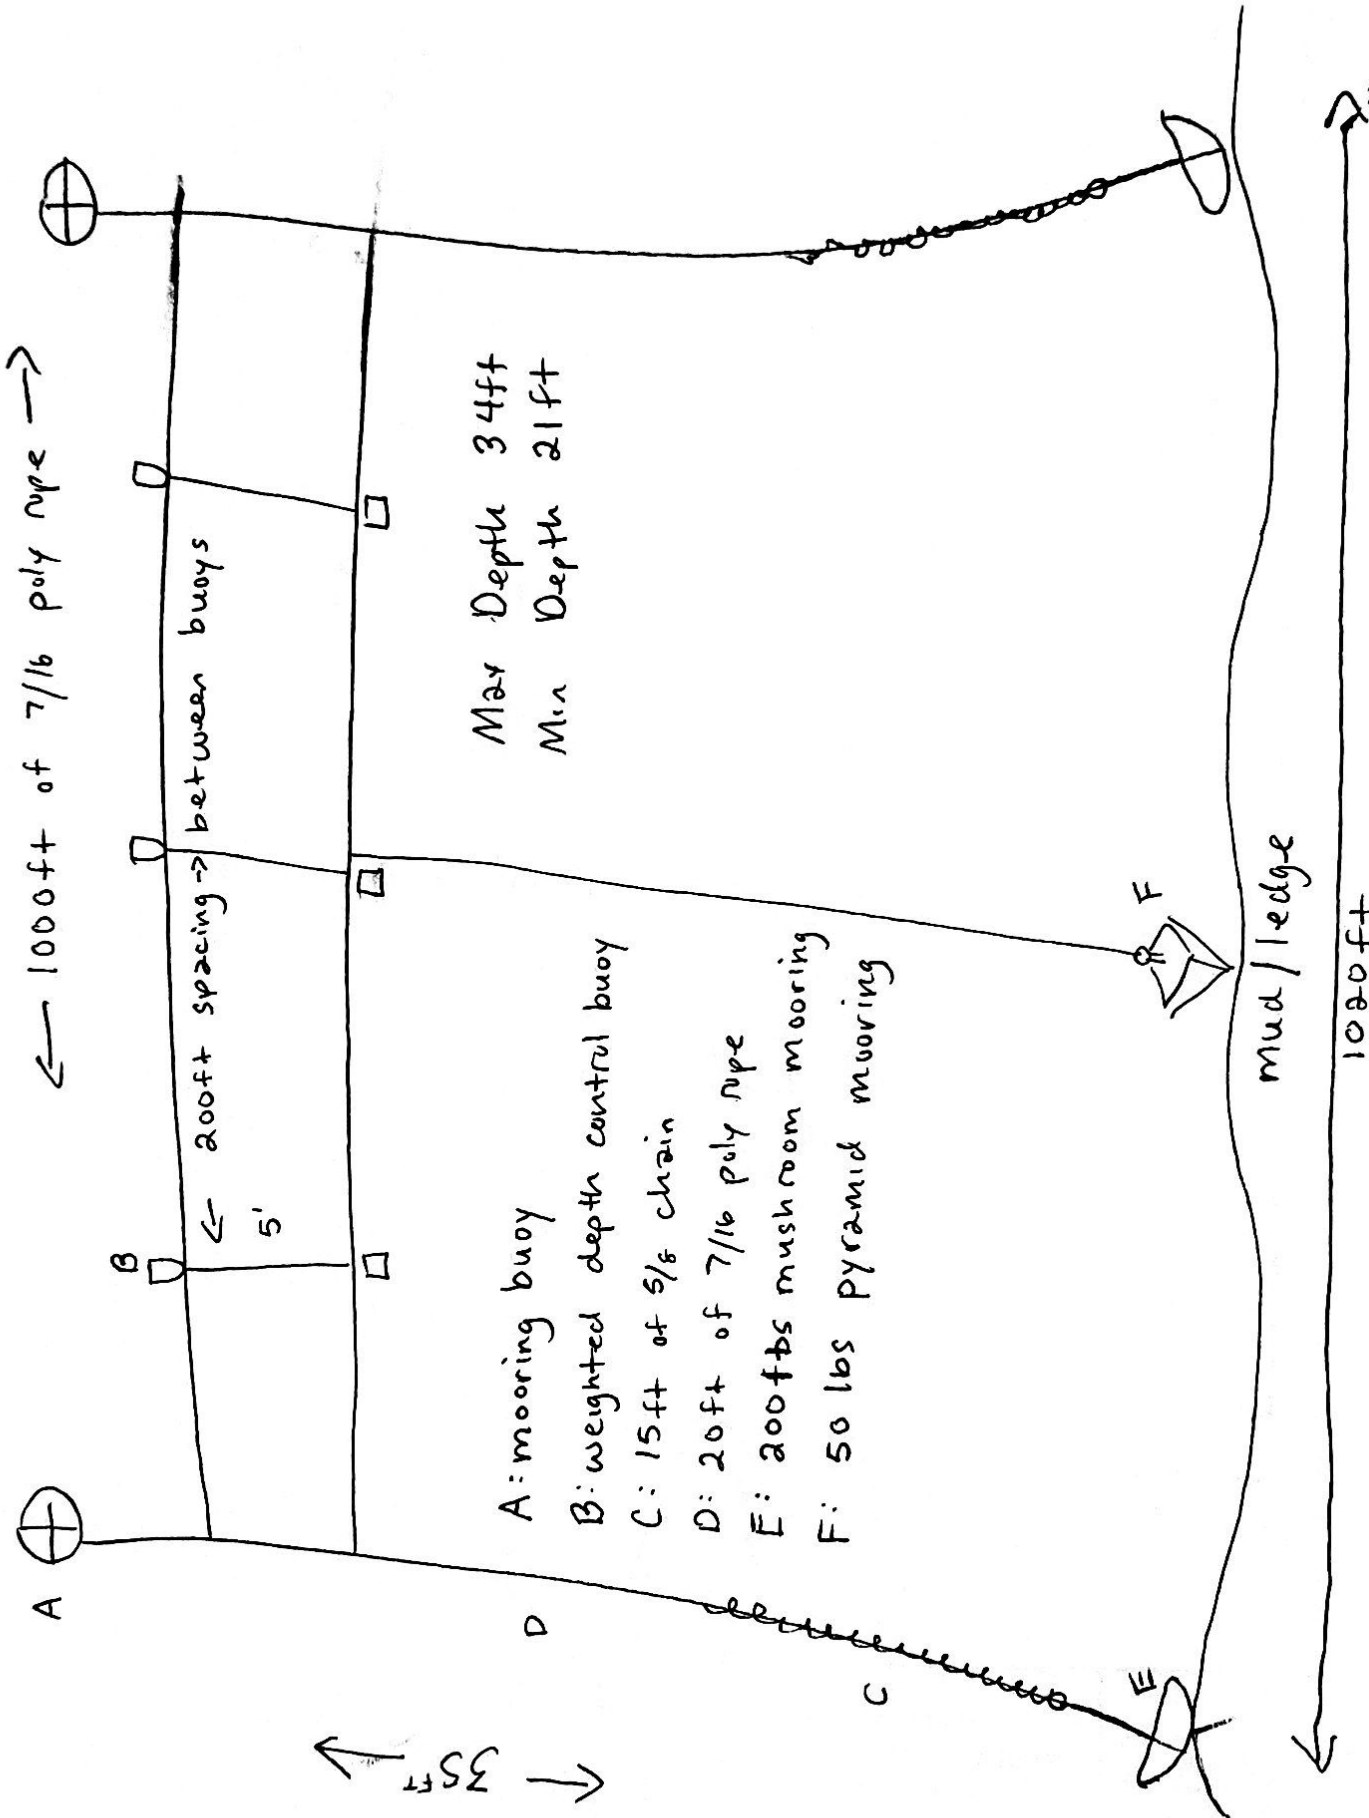 ← 1000ft of 7/16 poly rope →
A
B
← 200ft spacing → between buoys
5'
Max Depth 34ft
Min Depth 21ft
A: mooring buoy
B: weighted depth control buoy
C: 15ft of 5/8 chain
D: 20ft of 7/16 poly rope
E: 200lbs mushroom mooring
F: 50 lbs pyramid mooring
D
← 35FT →
C
E
F
mud/ledge
1020ft